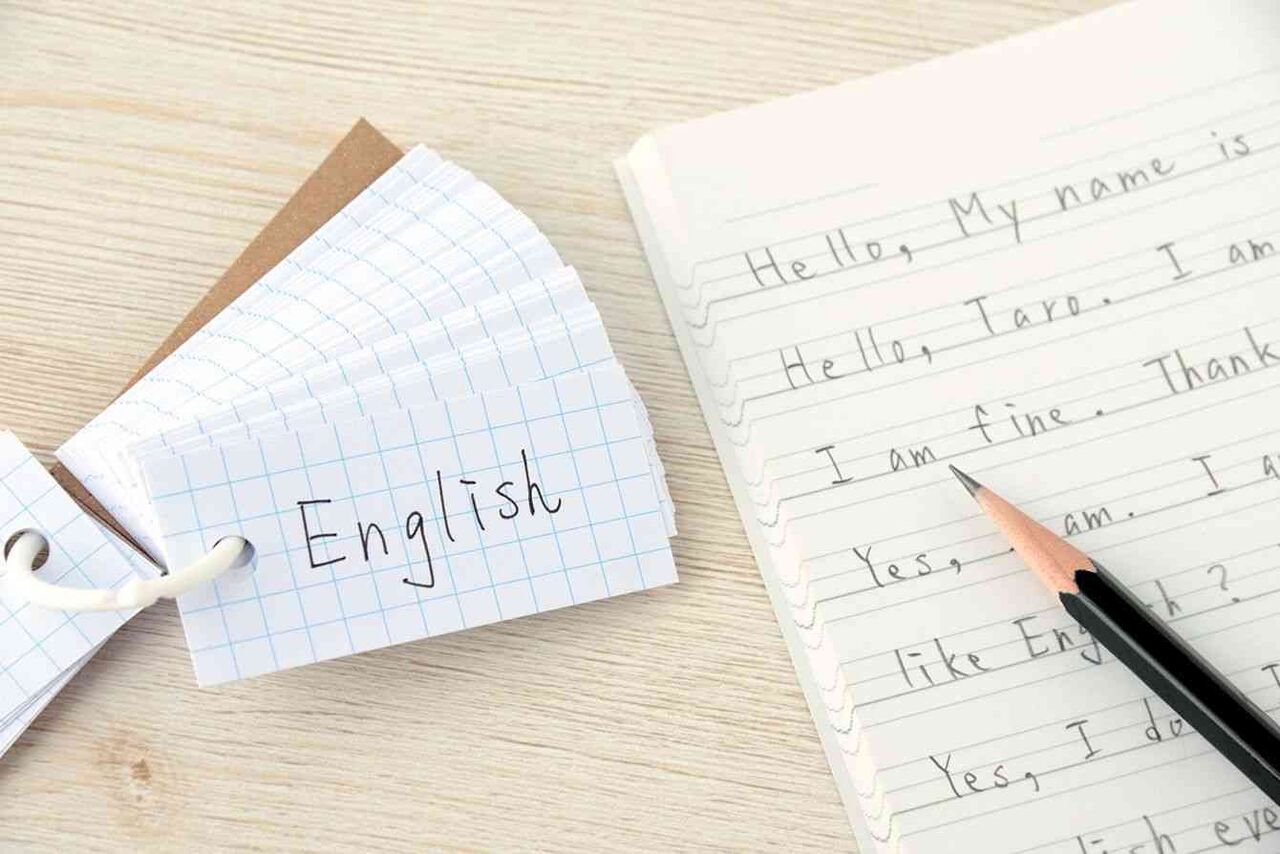 English
Hello, My name is
Hello, Taro. I am
I am fine. Thank
Yes, I am. I
like English?
Yes, I do